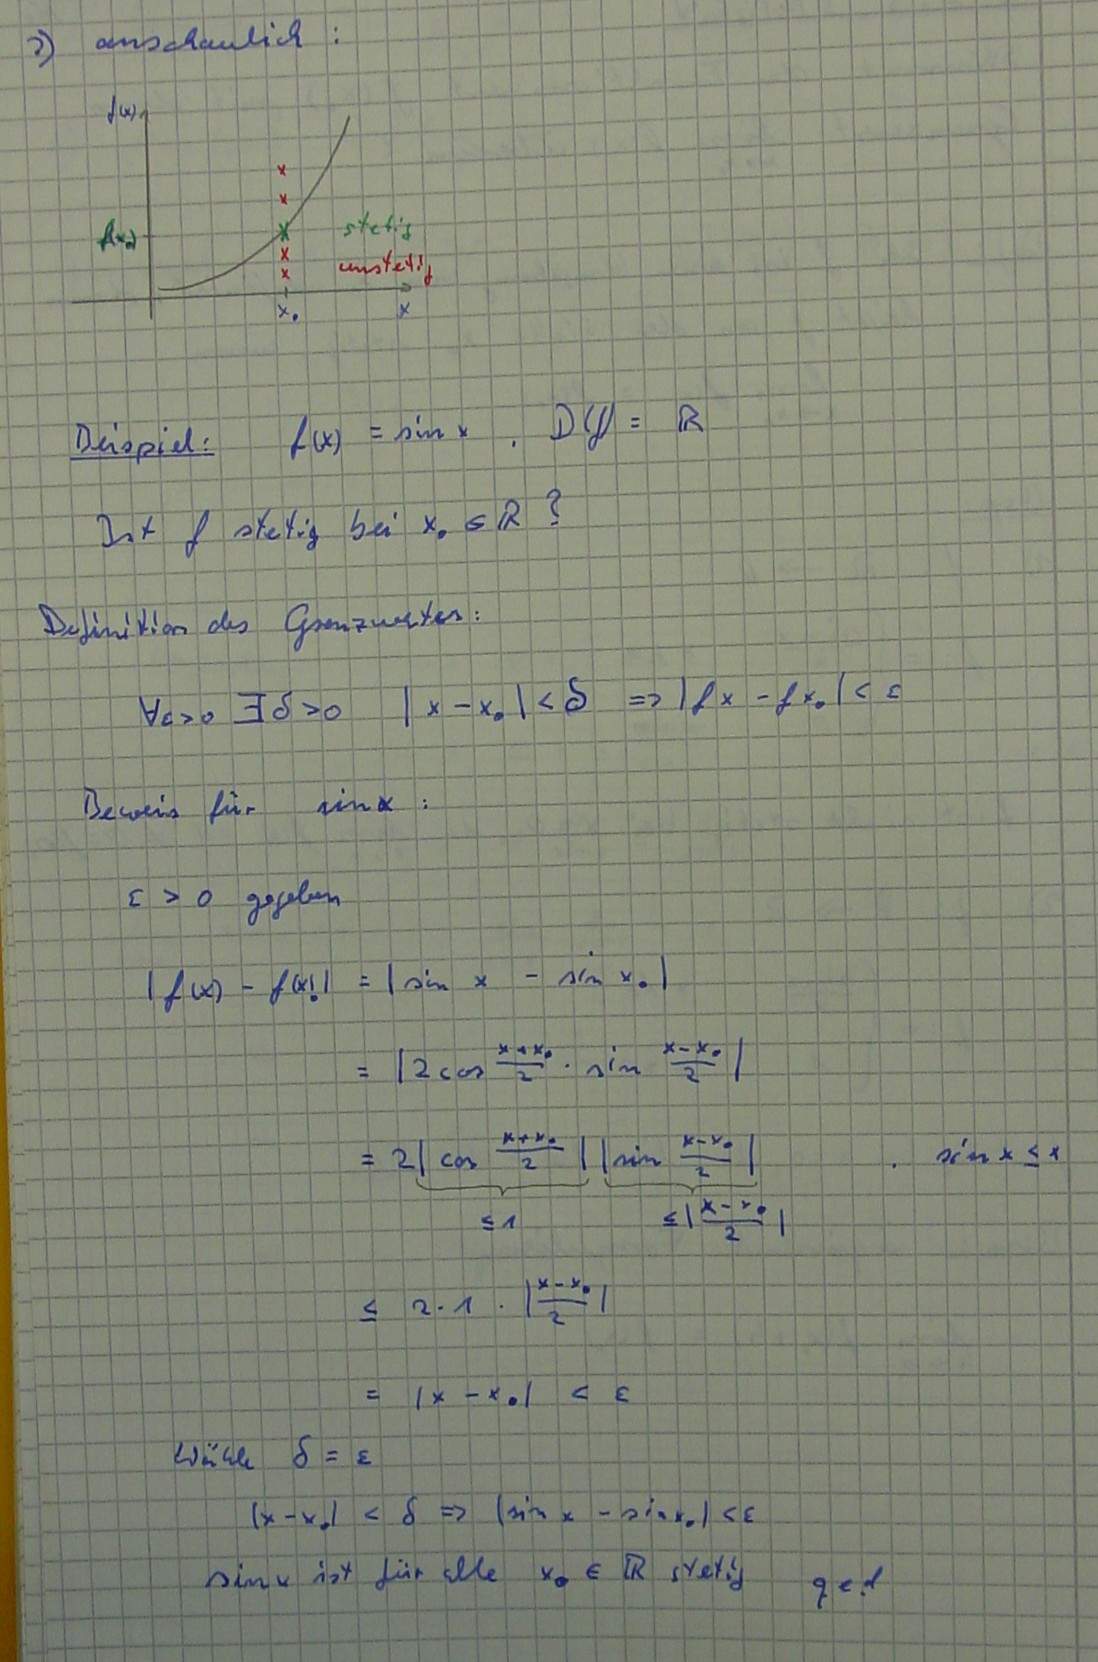 2) anschaulich:
f(x)
f(x₀) stetig
unstetig
x₀ x
Beispiel: f(x) = sin x . D(f) = ℝ
Ist f stetig bei x₀ ∈ ℝ ?
Definition des Grenzwertes:
∀ε>0 ∃δ>0 |x - x₀| < δ => |fx - fx₀| < ε
Beweis für sin x :
ε > 0 gegeben
|f(x) - f(x₀)| = |sin x - sin x₀|
= |2 cos (x+x₀)/2 · sin (x-x₀)/2|
= 2|cos (x+x₀)/2| |sin (x-x₀)/2| . sin x ≤ x
≤ 1 ≤ |(x-x₀)/2|
≤ 2 · 1 · |(x-x₀)/2|
= |x - x₀| < ε
Wähle δ = ε
|x-x₀| < δ => |sin x - sin x₀| < ε
sin x ist für alle x₀ ∈ ℝ stetig qed